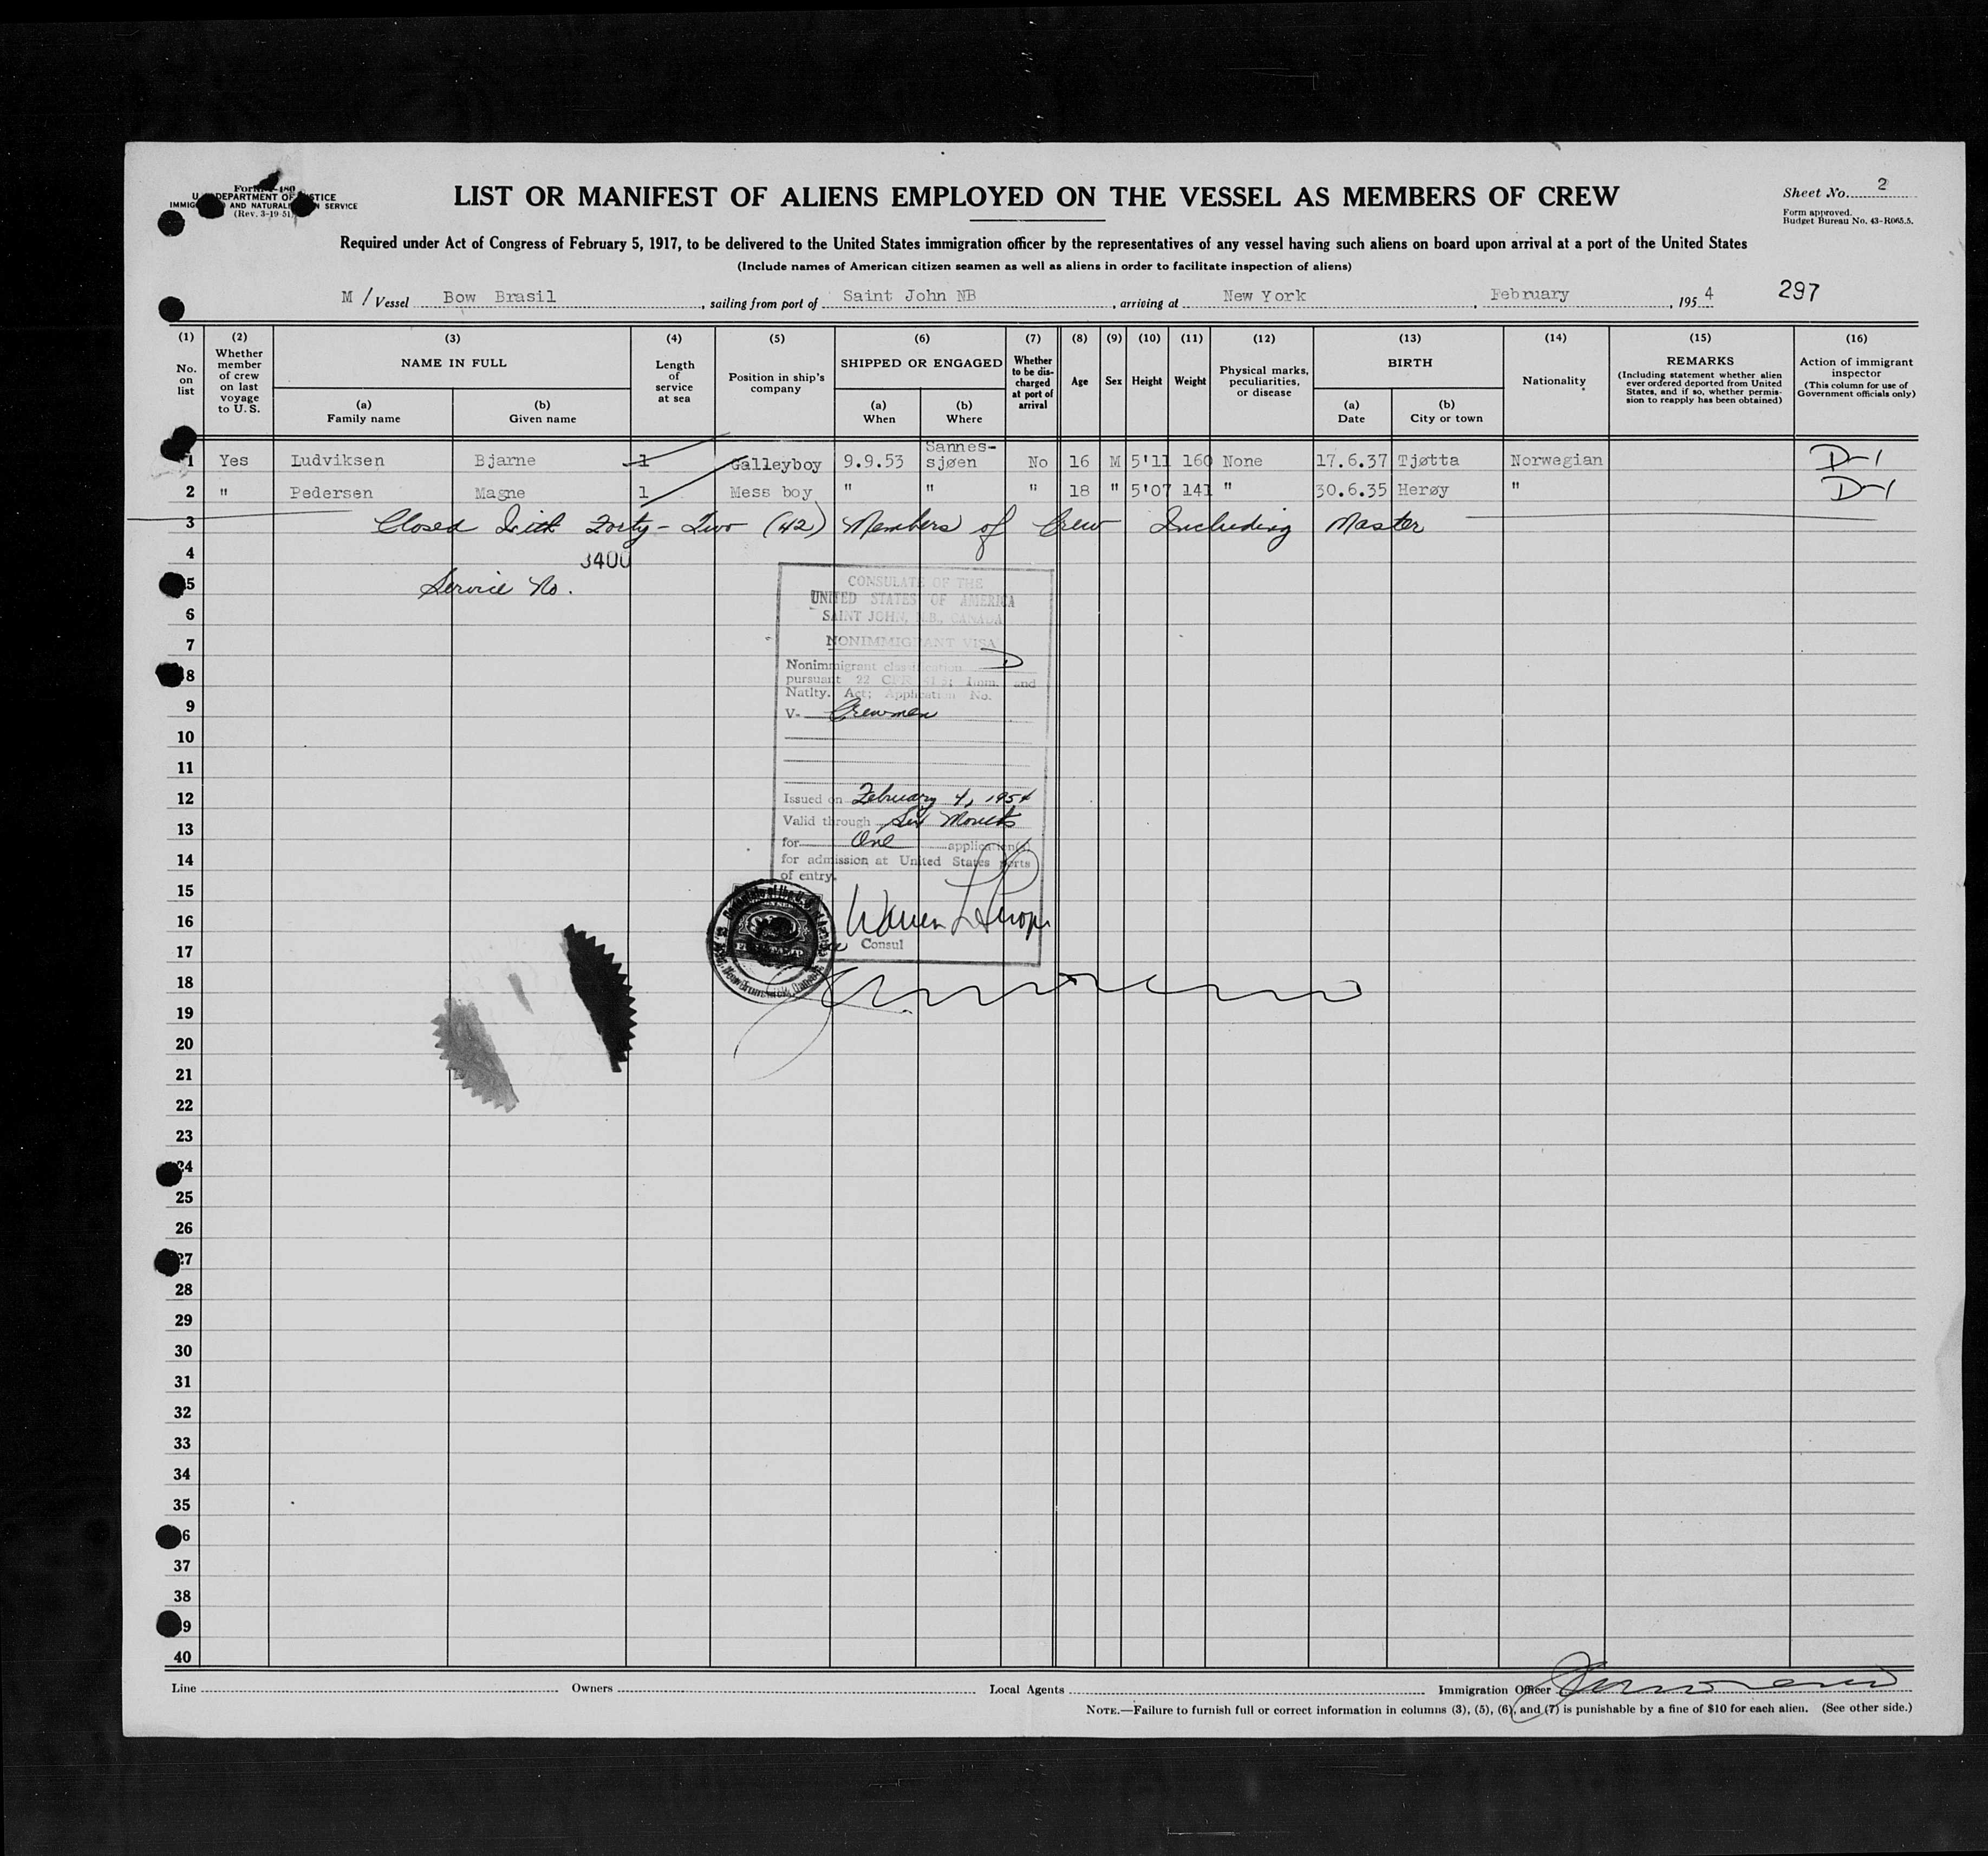 Form I-480
U. S. DEPARTMENT OF JUSTICE
IMMIGRATION AND NATURALIZATION SERVICE
(Rev. 3-19-51)
LIST OR MANIFEST OF ALIENS EMPLOYED ON THE VESSEL AS MEMBERS OF CREW
Sheet No. 2
Form approved.
Budget Bureau No. 43-R065.5.
Required under Act of Congress of February 5, 1917, to be delivered to the United States immigration officer by the representatives of any vessel having such aliens on board upon arrival at a port of the United States
(Include names of American citizen seamen as well as aliens in order to facilitate inspection of aliens)
M / Vessel Bow Brasil, sailing from port of Saint John NB, arriving at New York, February, 1954 297
(1) No. on list
(2) Whether member of crew on last voyage to U. S.
(3) NAME IN FULL
(a) Family name
(b) Given name
(4) Length of service at sea
(5) Position in ship's company
(6) SHIPPED OR ENGAGED
(a) When
(b) Where
(7) Whether to be discharged at port of arrival
(8) Age
(9) Sex
(10) Height
(11) Weight
(12) Physical marks, peculiarities, or disease
(13) BIRTH
(a) Date
(b) City or town
(14) Nationality
(15) REMARKS
(Including statement whether alien ever ordered deported from United States, and if so, whether permission to reapply has been obtained)
(16) Action of immigrant inspector
(This column for use of Government officials only)
1 Yes Ludviksen Bjarne 1 Galleyboy 9.9.53 Sannes-sjøen No 16 M 5'11 160 None 17.6.37 Tjøtta Norwegian D-1
2 " Pedersen Magne 1 Mess boy " " " 18 " 5'07 141 " 30.6.35 Herøy " D-1
3 Closed With Forty-Two (42) Members of Crew Including Master
4 3400
5 Service No.
6
7
8
9
10
11
12
13
14
15
16
17
18
19
20
21
22
23
24
25
26
27
28
29
30
31
32
33
34
35
36
37
38
39
40
CONSULATE OF THE
UNITED STATES OF AMERICA
SAINT JOHN, N.B., CANADA
NONIMMIGRANT VISA
Nonimmigrant classification D
pursuant 22 CFR 41.5; Imm. and
Natlty. Act; Application No.
V- Crewmen
Issued on February 4, 1954
Valid through Six Months
for One application(s)
for admission at United States ports
of entry.
Consul
Line
Owners
Local Agents
Immigration Officer
NOTE.—Failure to furnish full or correct information in columns (3), (5), (6), and (7) is punishable by a fine of $10 for each alien. (See other side.)